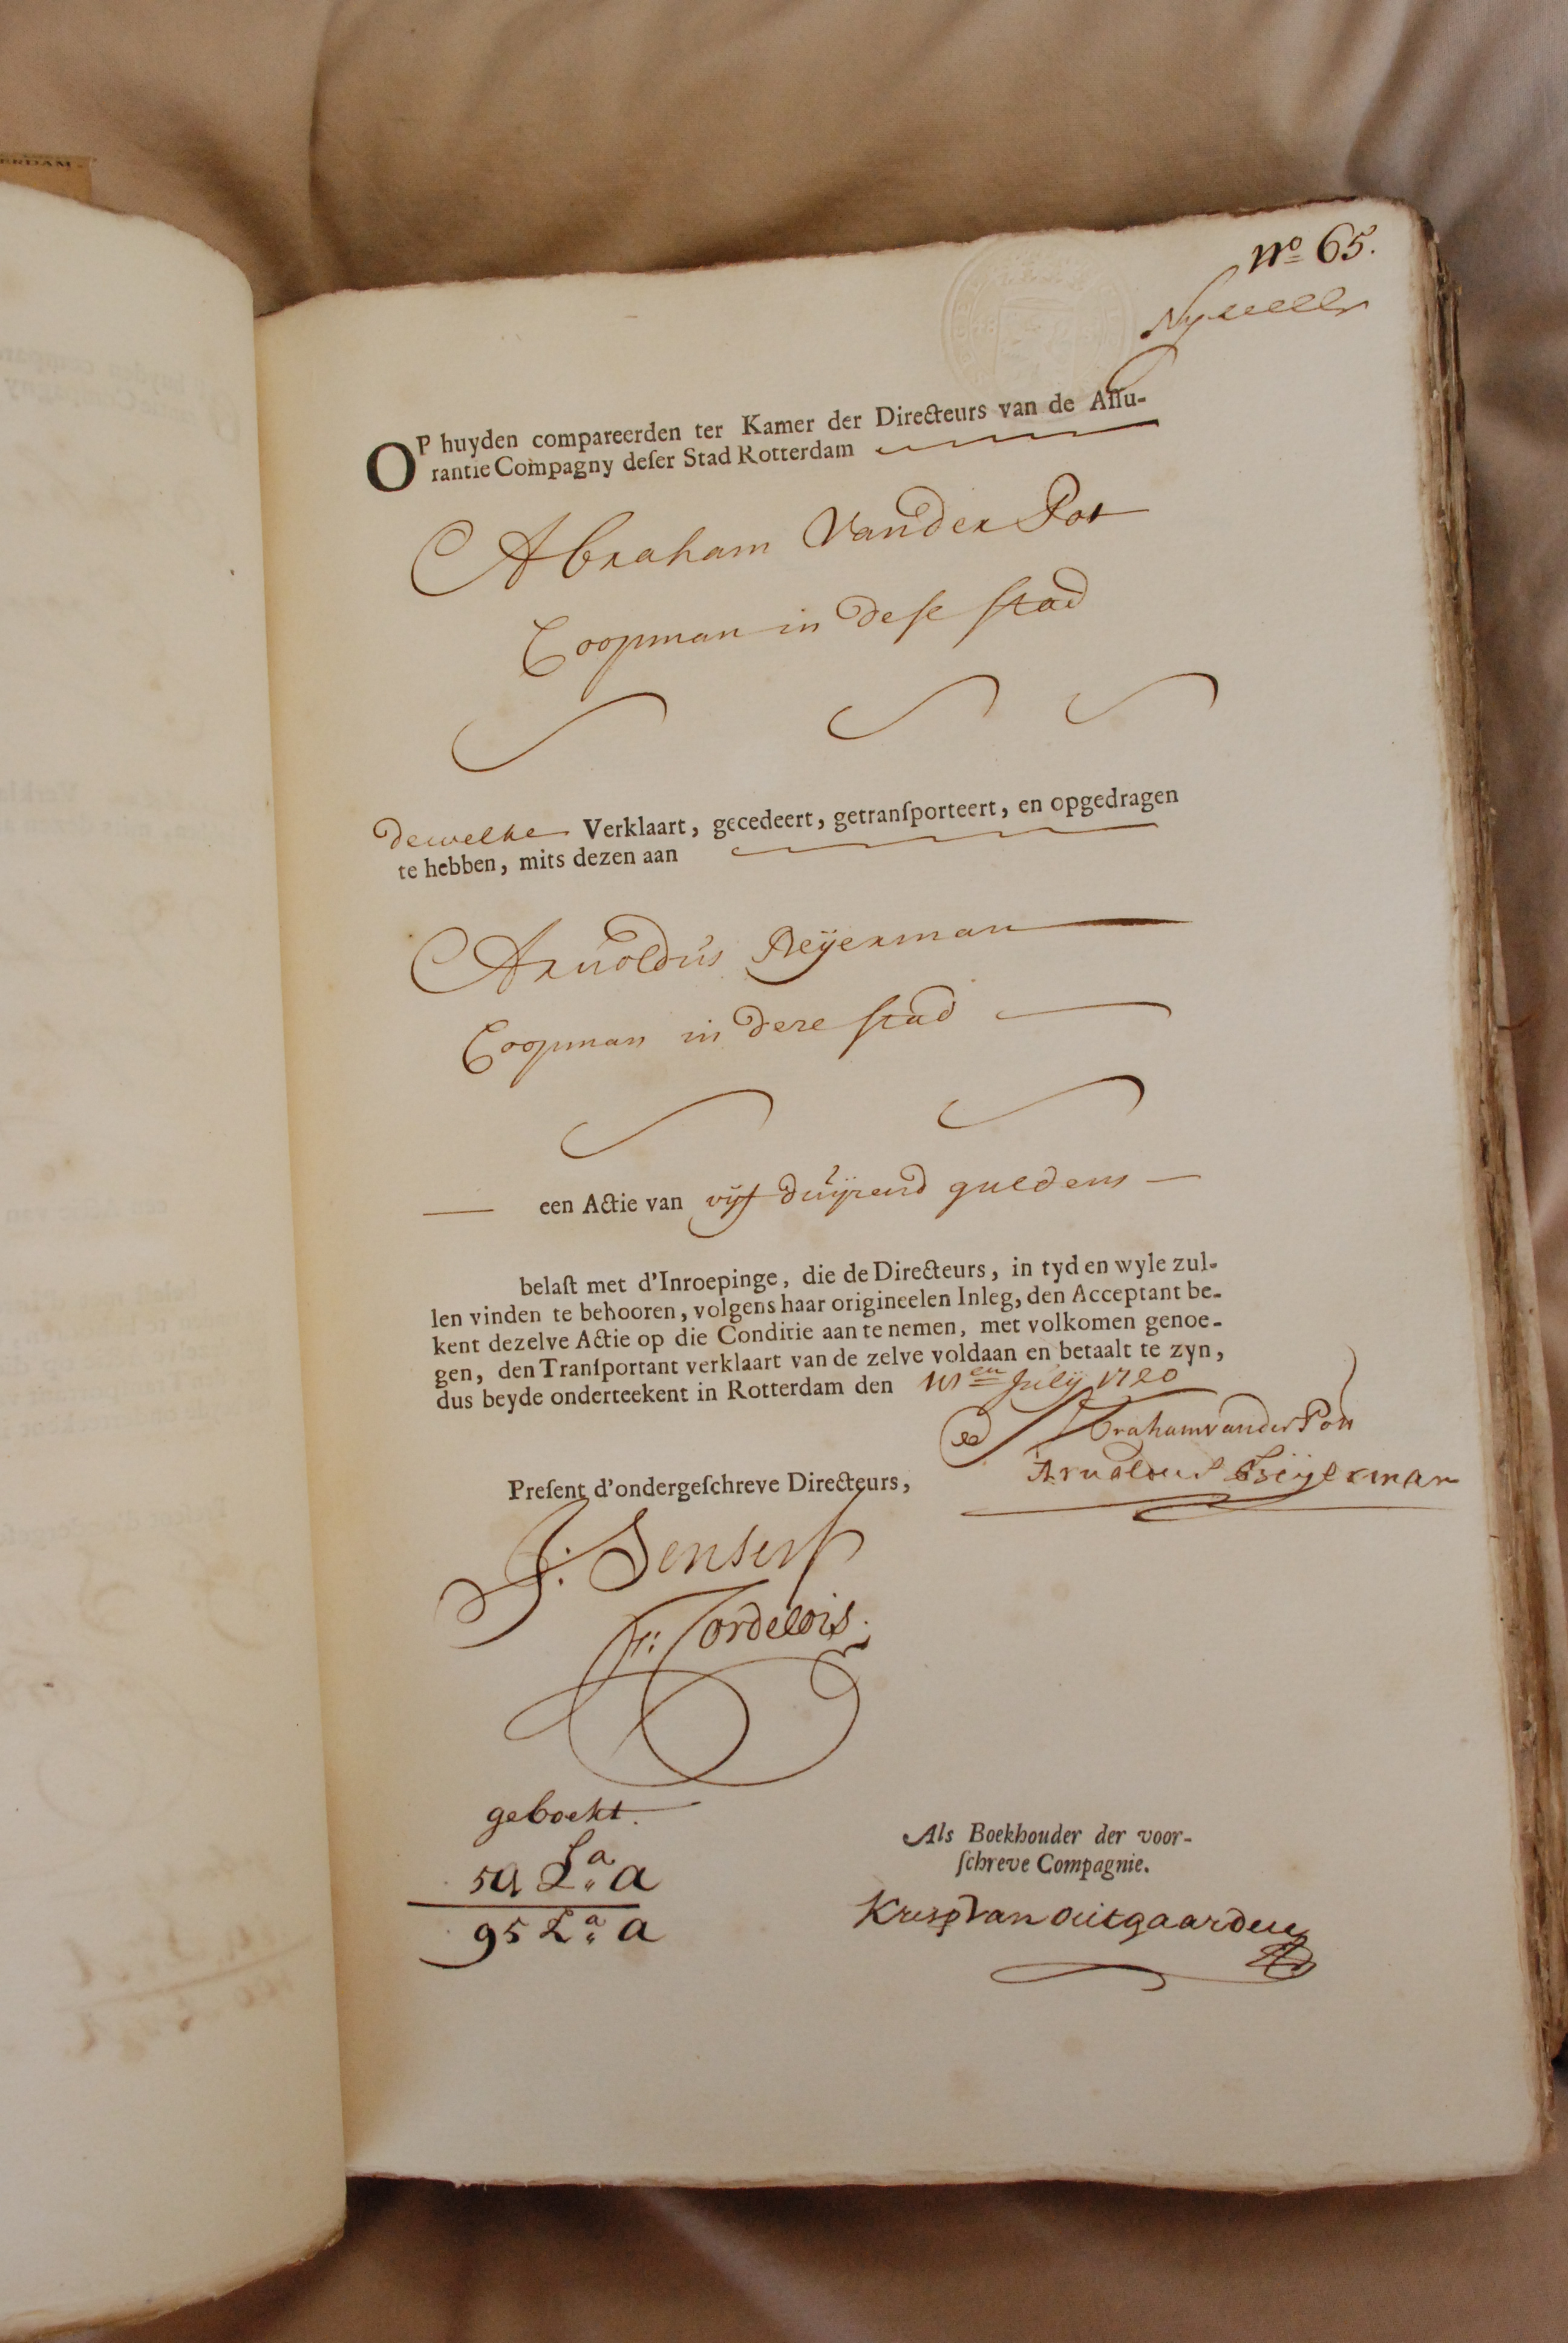 ERDAM
Nº 65.
OP huyden compareerden ter Kamer der Directeurs van de Aſſu-
rantie Compagny deſer Stad Rotterdam
Abraham Vander Pot
Coopman in deſe ſtad
dewelke Verklaart, gecedeert, getranſporteert, en opgedragen
te hebben, mits dezen aan
Arnoldus Reÿerman
Coopman in deze ſtad
een Actie van vijf duijzend guldens
belaſt met d'Inroepinge, die de Directeurs, in tyd en wyle zul-
len vinden te behooren, volgens haar origineelen Inleg, den Acceptant be-
kent dezelve Actie op die Conditie aan te nemen, met volkomen genoe-
gen, den Tranſportant verklaart van de zelve voldaan en betaalt te zyn,
dus beyde onderteekent in Rotterdam den July 1720
Abraham vander Pott
Arnoldus
Preſent d'ondergeſchreve Directeurs,
J: Senserff
geboekt.
59 Lª a
95 Lª a
Als Boekhouder der voor-
ſchreve Compagnie.
Van Outgaarden